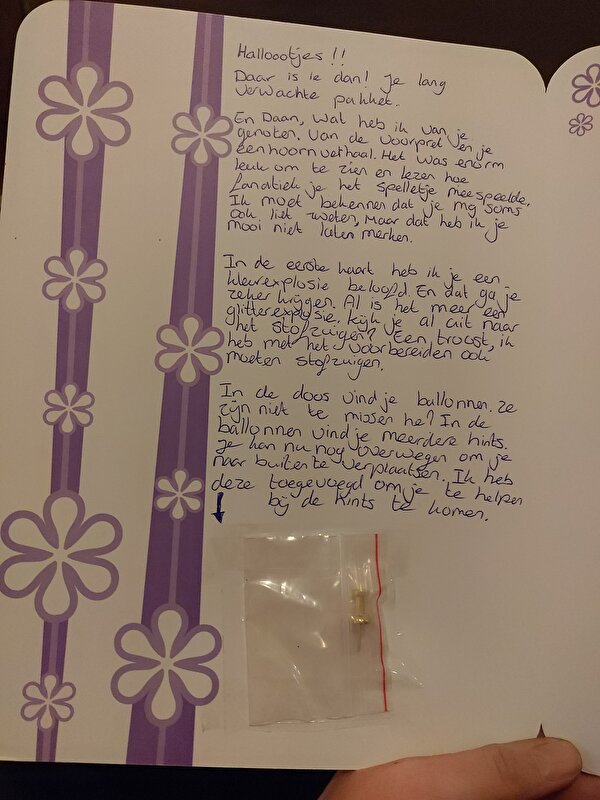 Halloootjes !!
Daar is ie dan! Je lang
verwachte pakket.
En Daan, wat heb ik van je
genoten. Van de voorpret en je
eenhoornverhaal. Het was enorm
leuk om te zien en lezen hoe
fanatiek je het spelletje meespeelde.
Ik moet bekennen dat je mg soms
ook liet zweten, maar dat heb ik je
mooi niet laten merken.
In de eerste kaart heb ik je een
kleurexplosie beloofd. En dat ga je
zeker krijgen. Al is het meer een
glitterexplosie. Kijk je al uit naar
het stofzuigen? Een troost, ik
heb met het voorbereiden ook
moeten stofzuigen.
In de doos vind je ballonnen. Ze
zijn niet te missen he? In de
ballonnen vind je meerdere hints.
Je kan nu nog overwegen om je
naar buiten te verplaatsen. Ik heb
deze toegevoegd om je te helpen
bij de hints te komen.